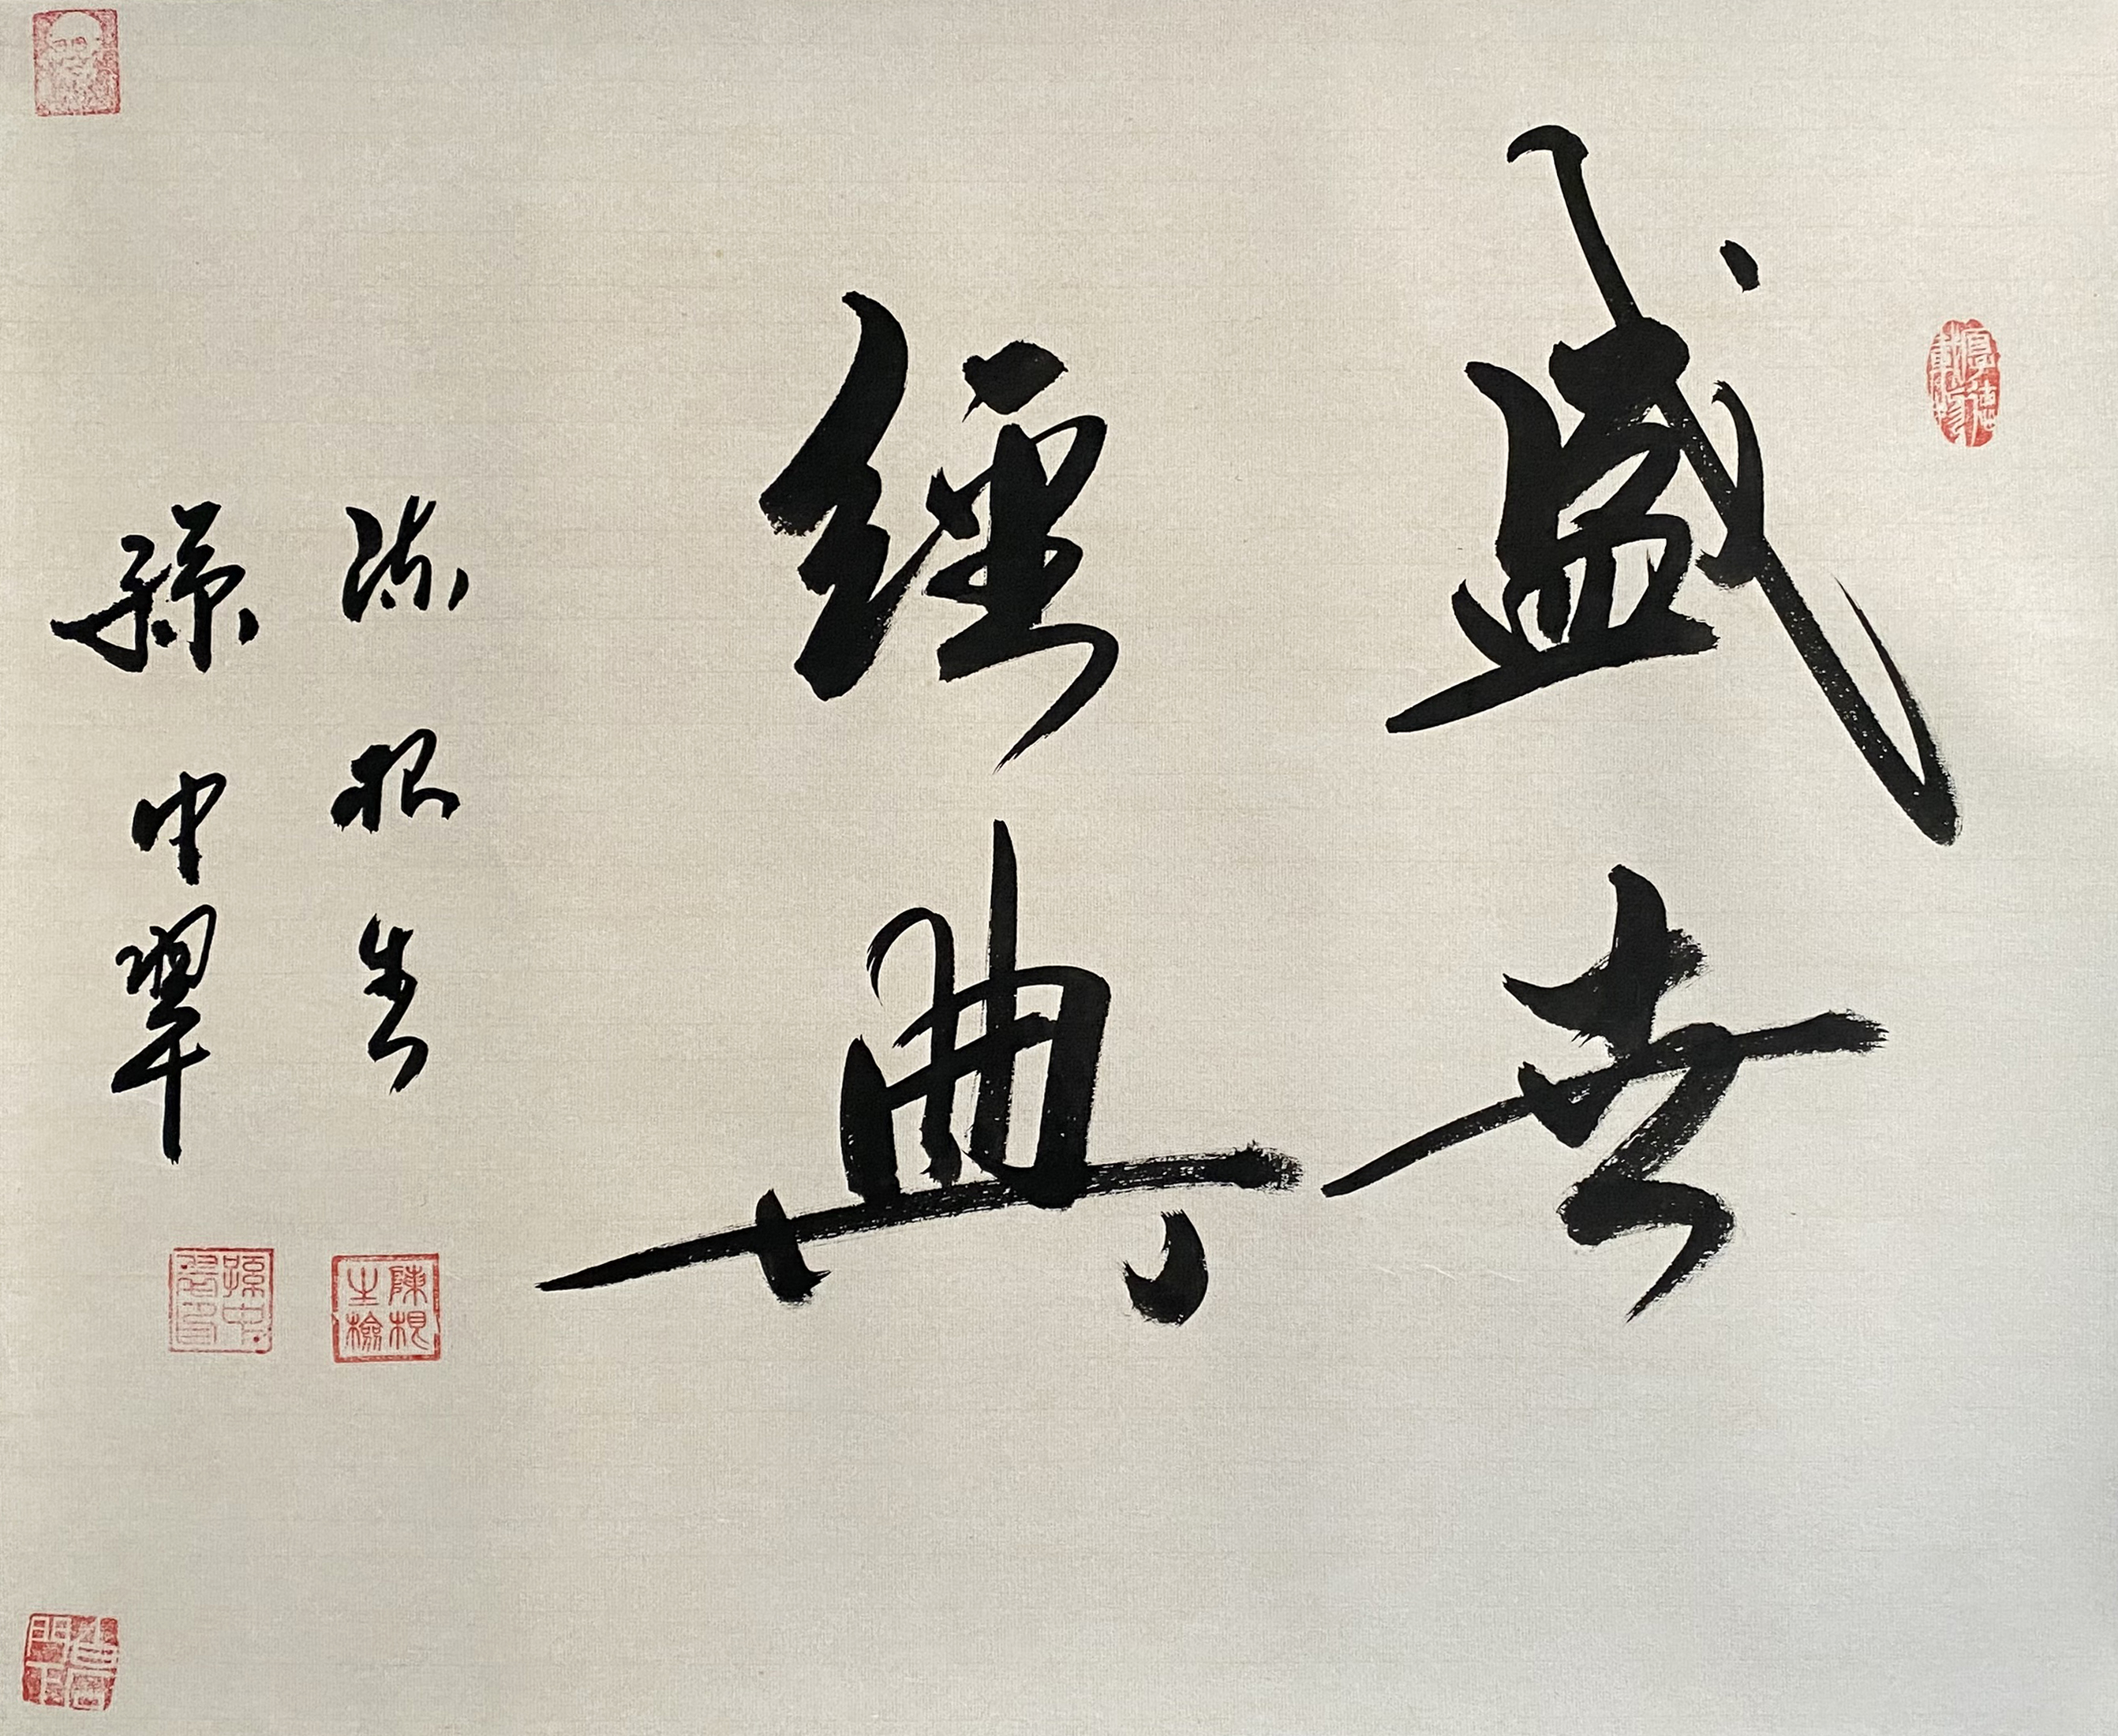 盛世
經典
陈根生
孫中翠
厚德載物
陳根生檢
孫中翠印